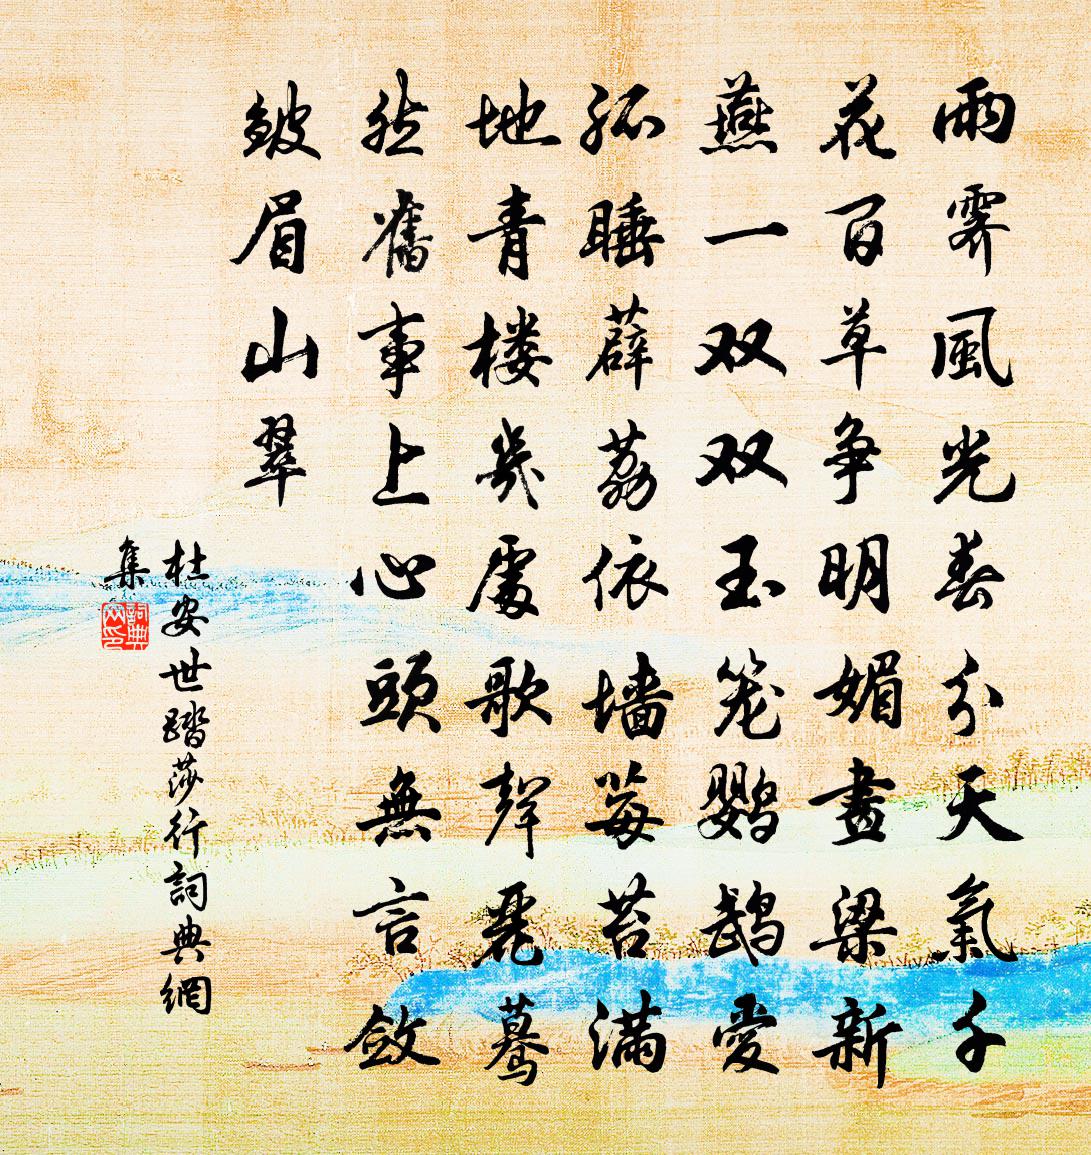 雨霽風光春分天氣千
花百草争明媚畫梁新
燕一双双玉笼鹦鹉愛
孤睡薜荔依墙莓苔满
地青楼幾處歌聲麗驀
然舊事上心頭無言斂
皺眉山翠
杜安世踏莎行詞典網
集
詞典网印